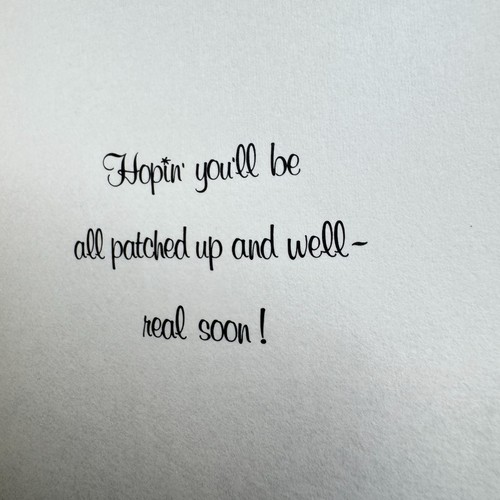 Hopin' you'll be
all patched up and well~
real soon!